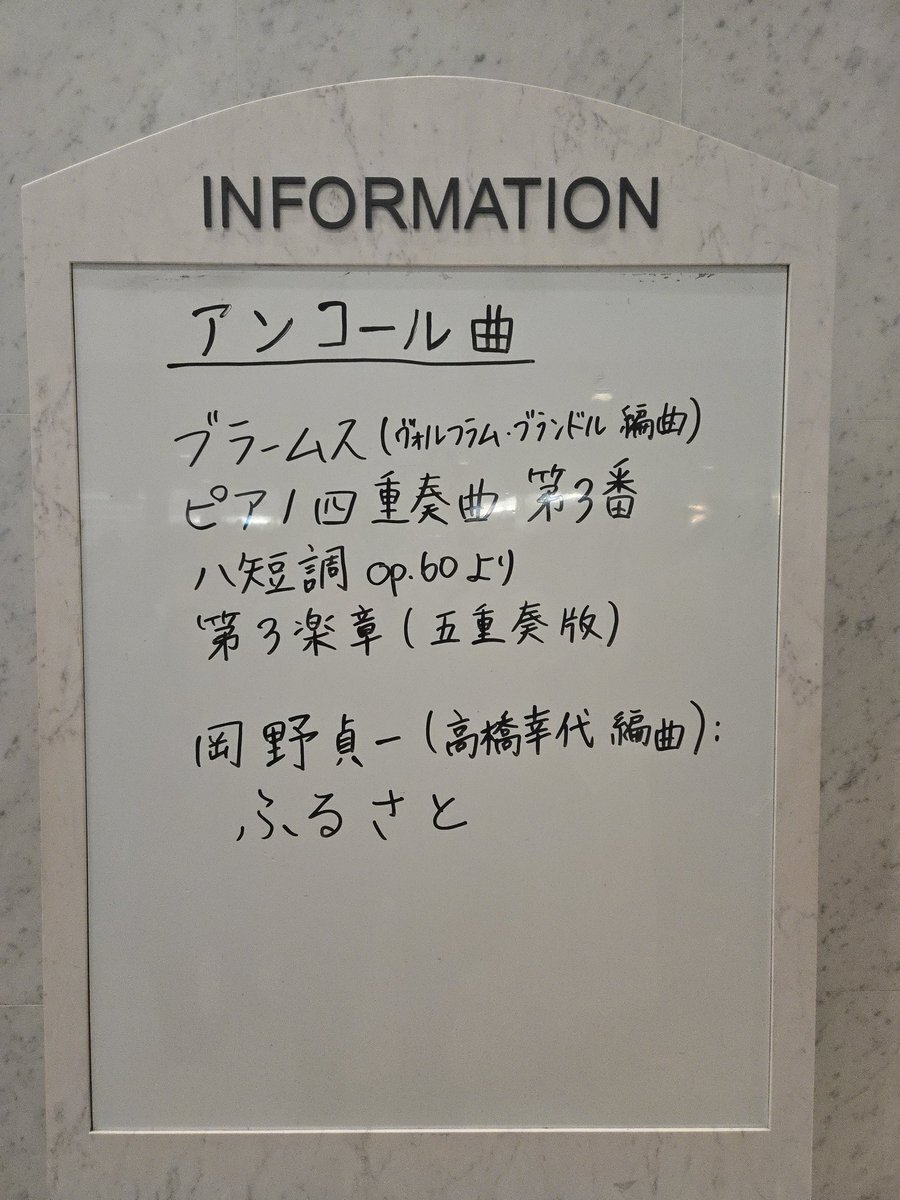 INFORMATION
アンコール曲
ブラームス(ヴォルフラム・ブランドル 編曲)
ピアノ四重奏曲 第3番
ハ短調 op.60より
第3楽章(五重奏版)
岡野貞一(高橋幸代 編曲):
ふるさと